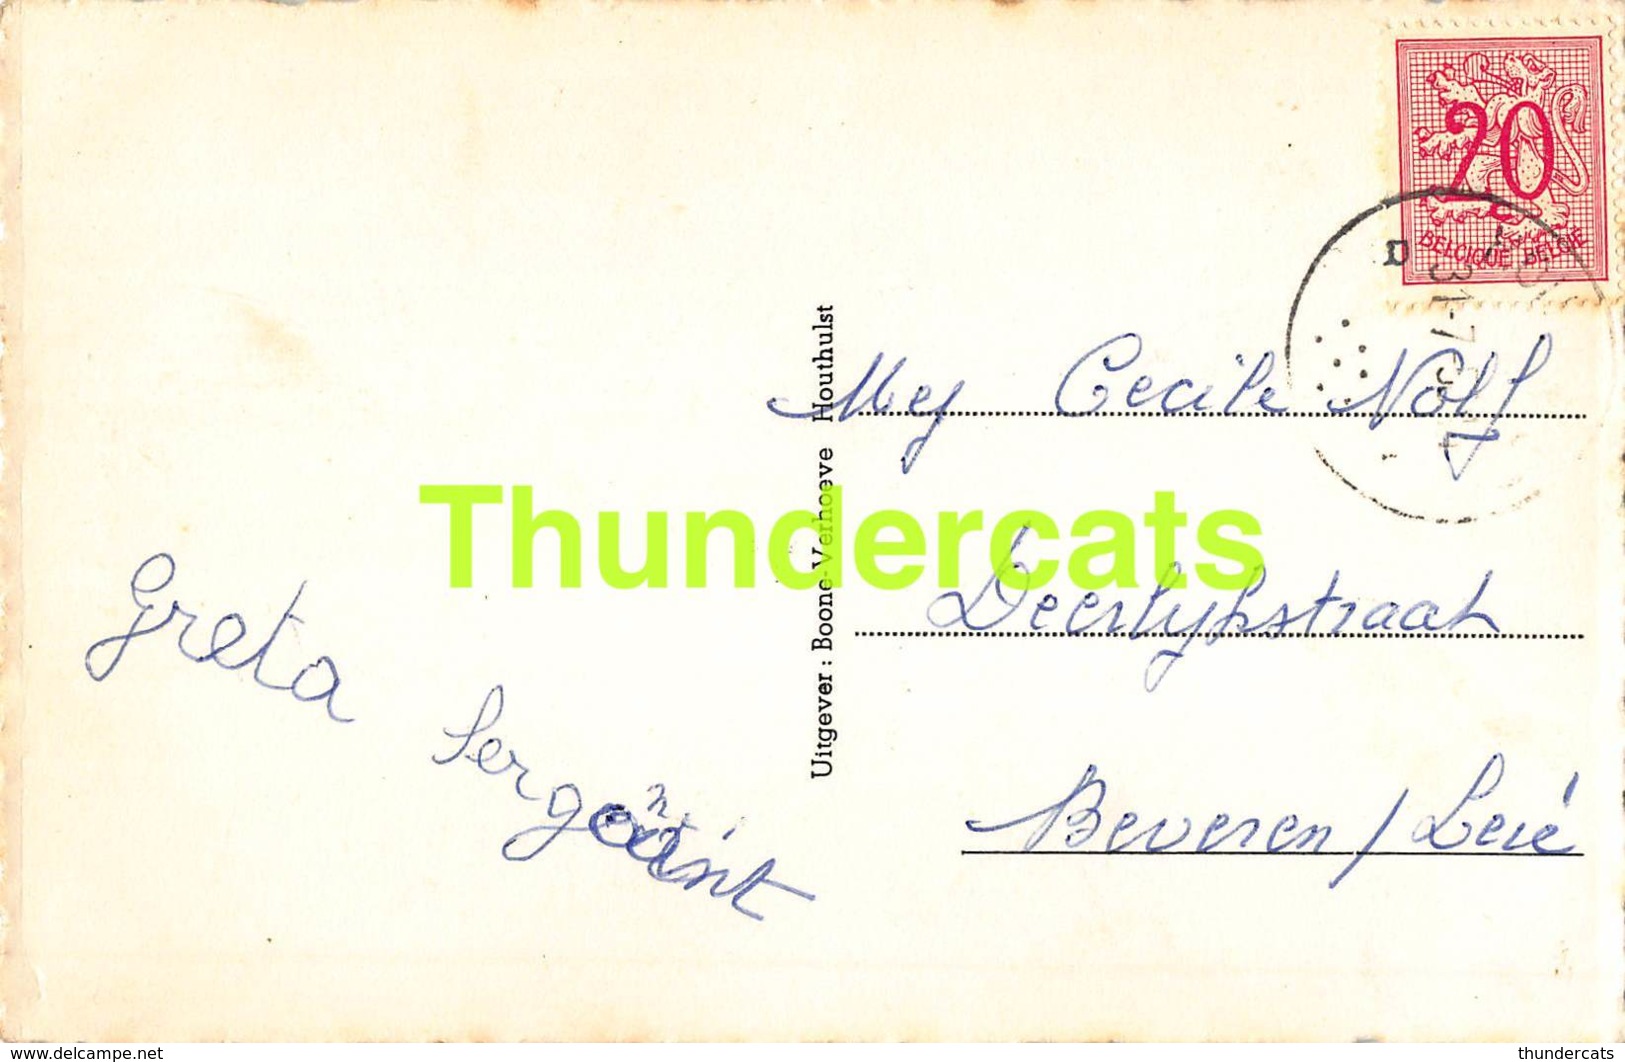 20
BELGIQUE BELGIË
D
31-7
Uitgever : Boone-Verhoeve Houthulst
Mej Cecile Nolf
Thundercats
Deerlijkstraat
Greta
Beveren / Leië
www.delcampe.net
thundercats